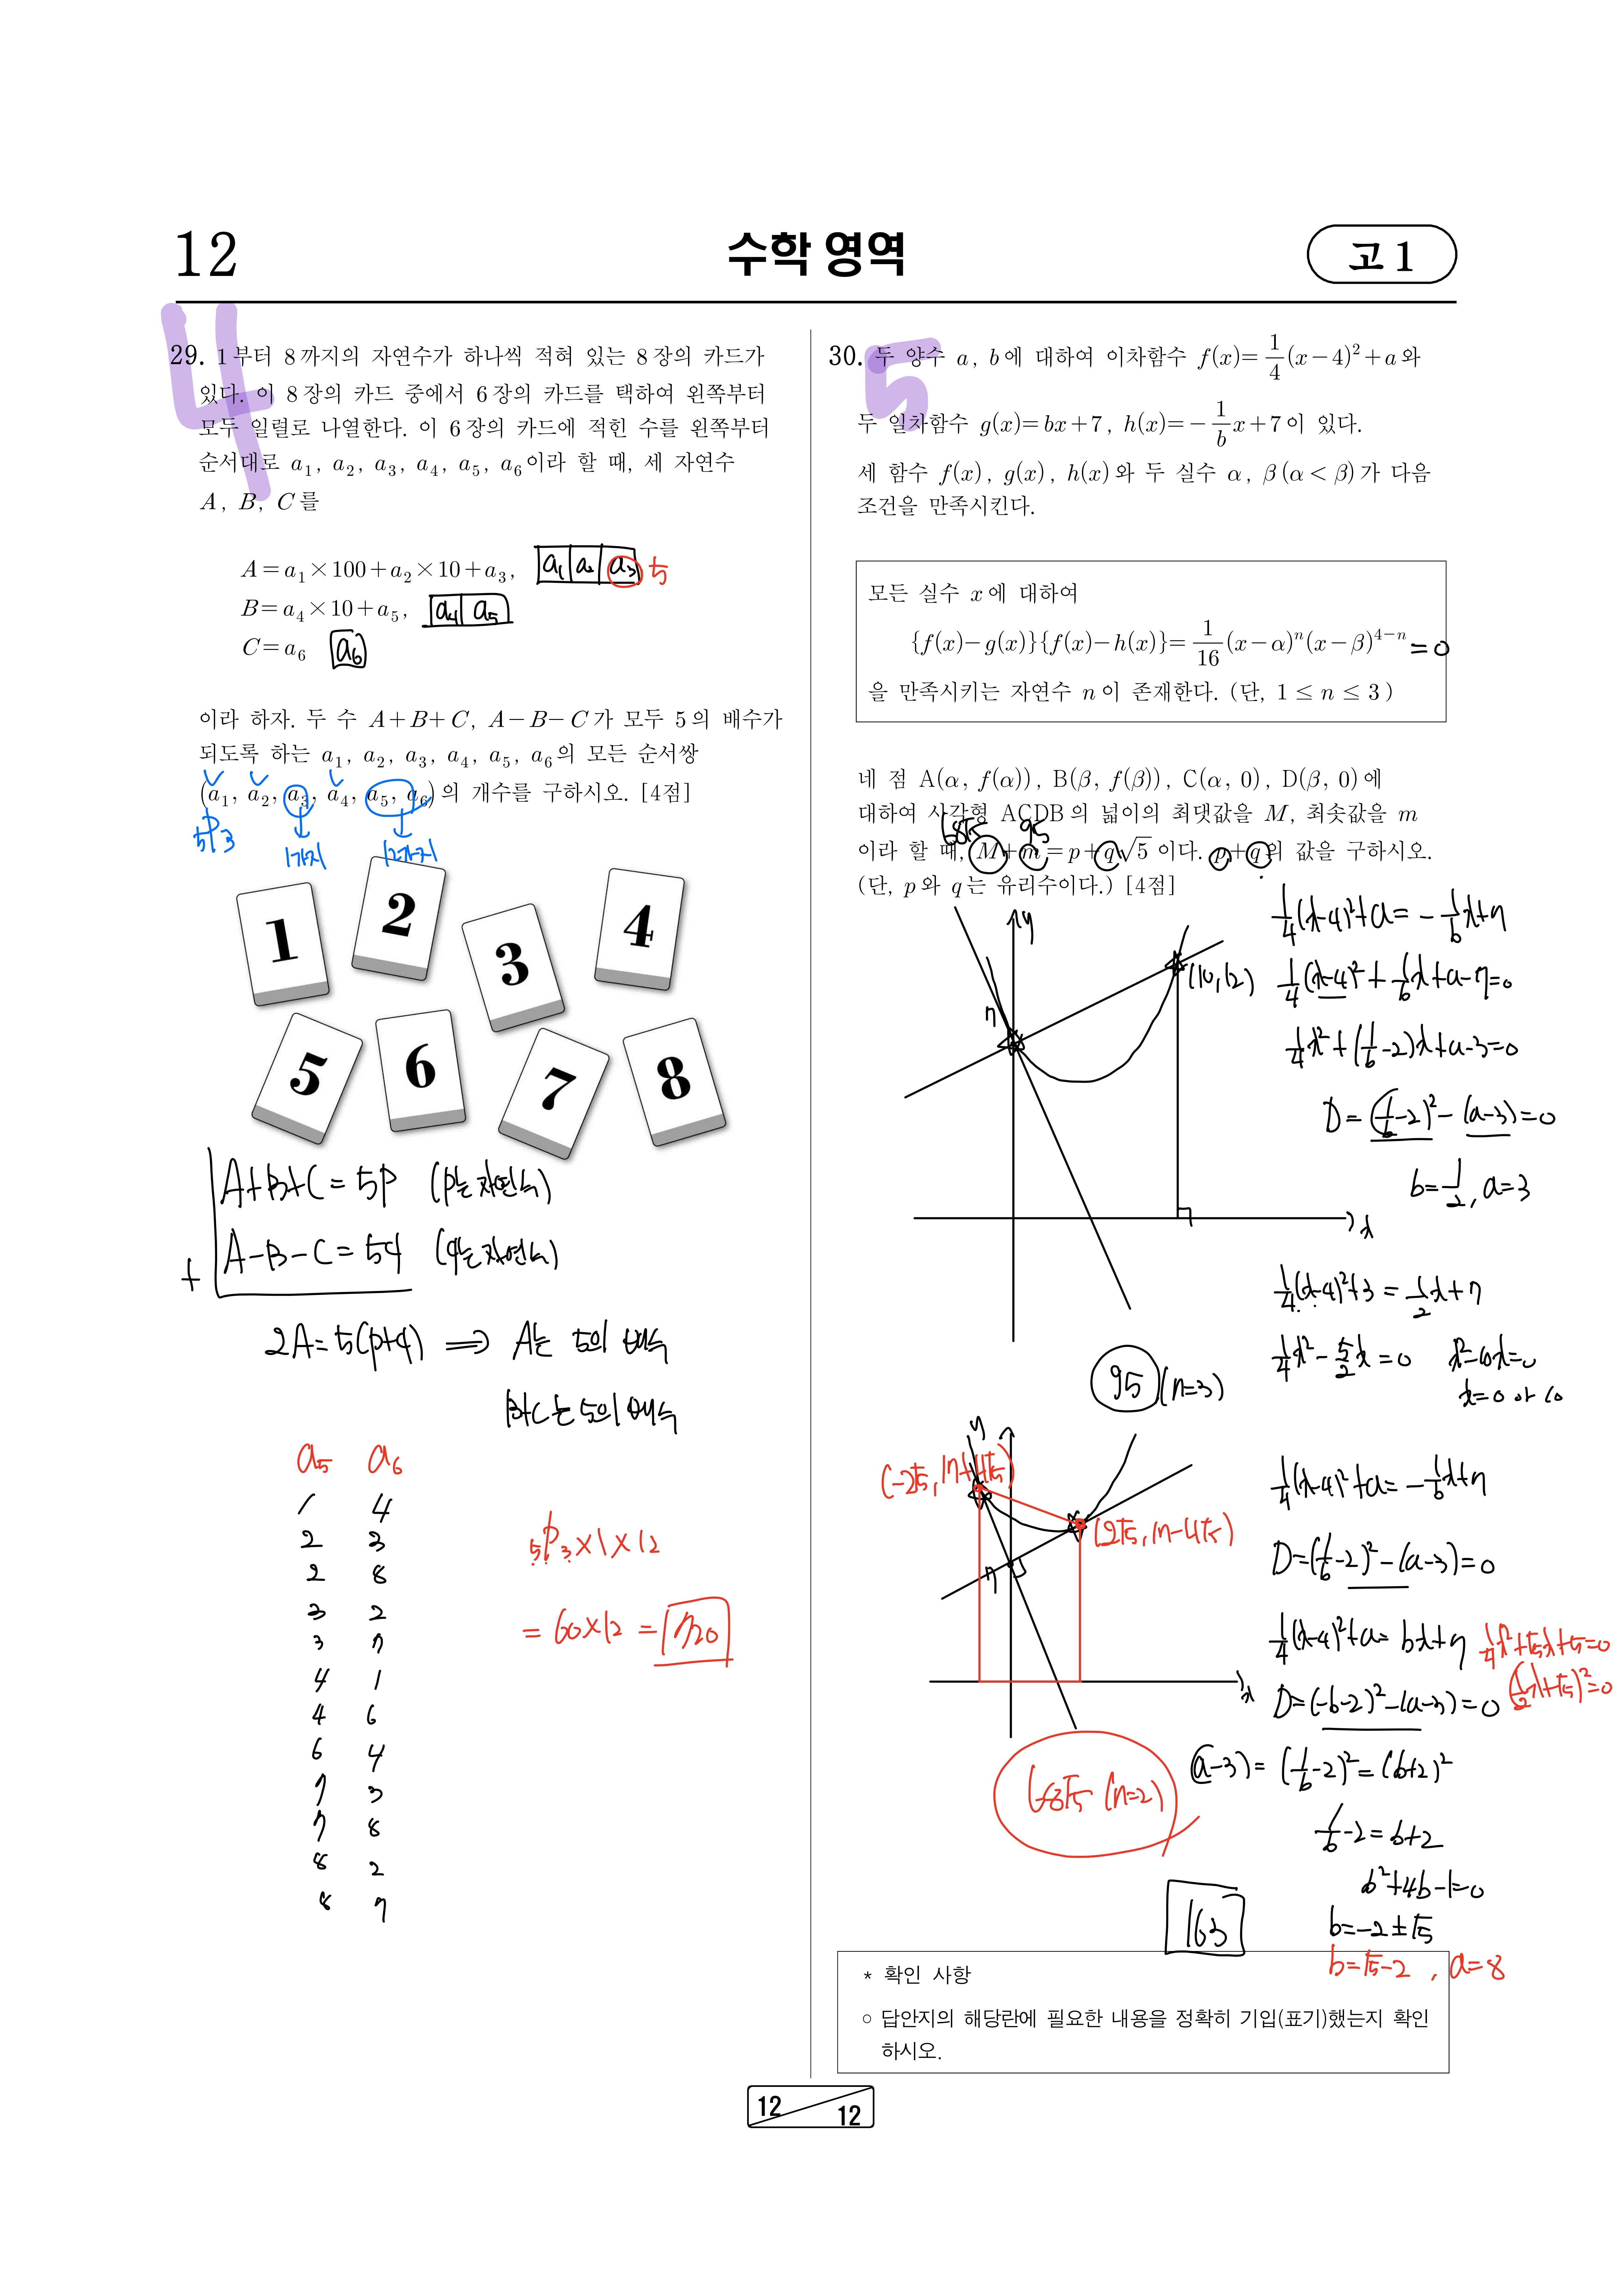 12
수학 영역
고 1
4
29. 1부터 8까지의 자연수가 하나씩 적혀 있는 8장의 카드가
있다. 이 8장의 카드 중에서 6장의 카드를 택하여 왼쪽부터
모두 일렬로 나열한다. 이 6장의 카드에 적힌 수를 왼쪽부터
순서대로 a₁, a₂, a₃, a₄, a₅, a₆이라 할 때, 세 자연수
A, B, C를
A=a₁×100+a₂×10+a₃, a₁ a₂ a₃ 5
B=a₄×10+a₅, a₄ a₅
C=a₆ a₆
이라 하자. 두 수 A+B+C, A-B-C가 모두 5의 배수가
되도록 하는 a₁, a₂, a₃, a₄, a₅, a₆의 모든 순서쌍
(a₁, a₂, a₃, a₄, a₅, a₆)의 개수를 구하시오. [4점]
₅P₃ 1가지 12가지
1
2
3
4
5
6
7
8
A+B+C=5p (p는 자연수)
+ A-B-C=5q (q는 자연수)
2A=5(p+q) ⟹ A는 5의 배수
B+C는 5의 배수
a₅ a₆
1 4
2 3
2 8
3 2
3 7
4 1
4 6
6 4
7 3
7 8
8 2
8 7
₅P₃×1×12
=60×12=720
5
30. 두 양수 a, b에 대하여 이차함수 f(x)=1/4(x-4)²+a와
두 일차함수 g(x)=bx+7, h(x)=-1/b x+7이 있다.
세 함수 f(x), g(x), h(x)와 두 실수 α, β(α<β)가 다음
조건을 만족시킨다.
모든 실수 x에 대하여
{f(x)-g(x)}{f(x)-h(x)}=1/16(x-α)ⁿ(x-β)⁴⁻ⁿ =0
을 만족시키는 자연수 n이 존재한다. (단, 1≤n≤3)
네 점 A(α, f(α)), B(β, f(β)), C(α, 0), D(β, 0)에
대하여 사각형 ACDB의 넓이의 최댓값을 M, 최솟값을 m
68√5 95
이라 할 때, M+m=p+q√5이다. p+q의 값을 구하시오.
(단, p와 q는 유리수이다.) [4점]
y
7
(10,12)
x
1/4(x-4)²+a=-1/b x+7
1/4(x-4)²+1/b x+a-7=0
1/4x²+(1/b-2)x+a-3=0
D=(1/b-2)²-(a-3)=0
b=1/2, a=3
1/4(x-4)²+3=1/2x+7
1/4x²-5/2x=0 x²-10x=0
x=0 or 10
95 (n=3)
y
(-2√5, 17+4√5)
(2√5, 17-4√5)
7
x
68√5 (n=2)
1/4(x-4)²+a=-1/b x+7
D=(1/b-2)²-(a-3)=0
1/4(x-4)²+a=bx+7 1/4x²+√5x+5=0
D=(-b-2)²-(a-3)=0 (1/2x+√5)²=0
(a-3)=(1/b-2)²=(b+2)²
1/b-2=b+2
b²+4b-1=0
b=-2±√5
b=√5-2, a=8
163
* 확인 사항
○ 답안지의 해당란에 필요한 내용을 정확히 기입(표기)했는지 확인
하시오.
12
12